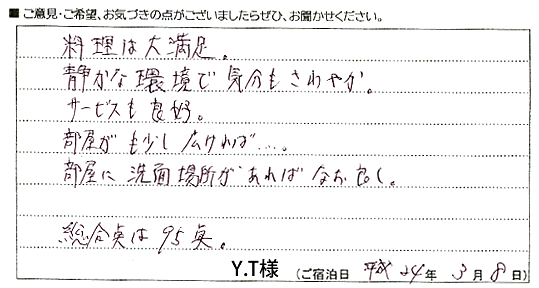 ■ ご意見・ご希望、お気づきの点がございましたらぜひ、お聞かせください。
料理は大満足。
静かな環境で気分もさわやか。
サービスも良好。
部屋がも少し広ければ…。
部屋に洗面場所があればなお良し。
総合点は95点。
Y.T様 (ご宿泊日 平成24年3月8日)